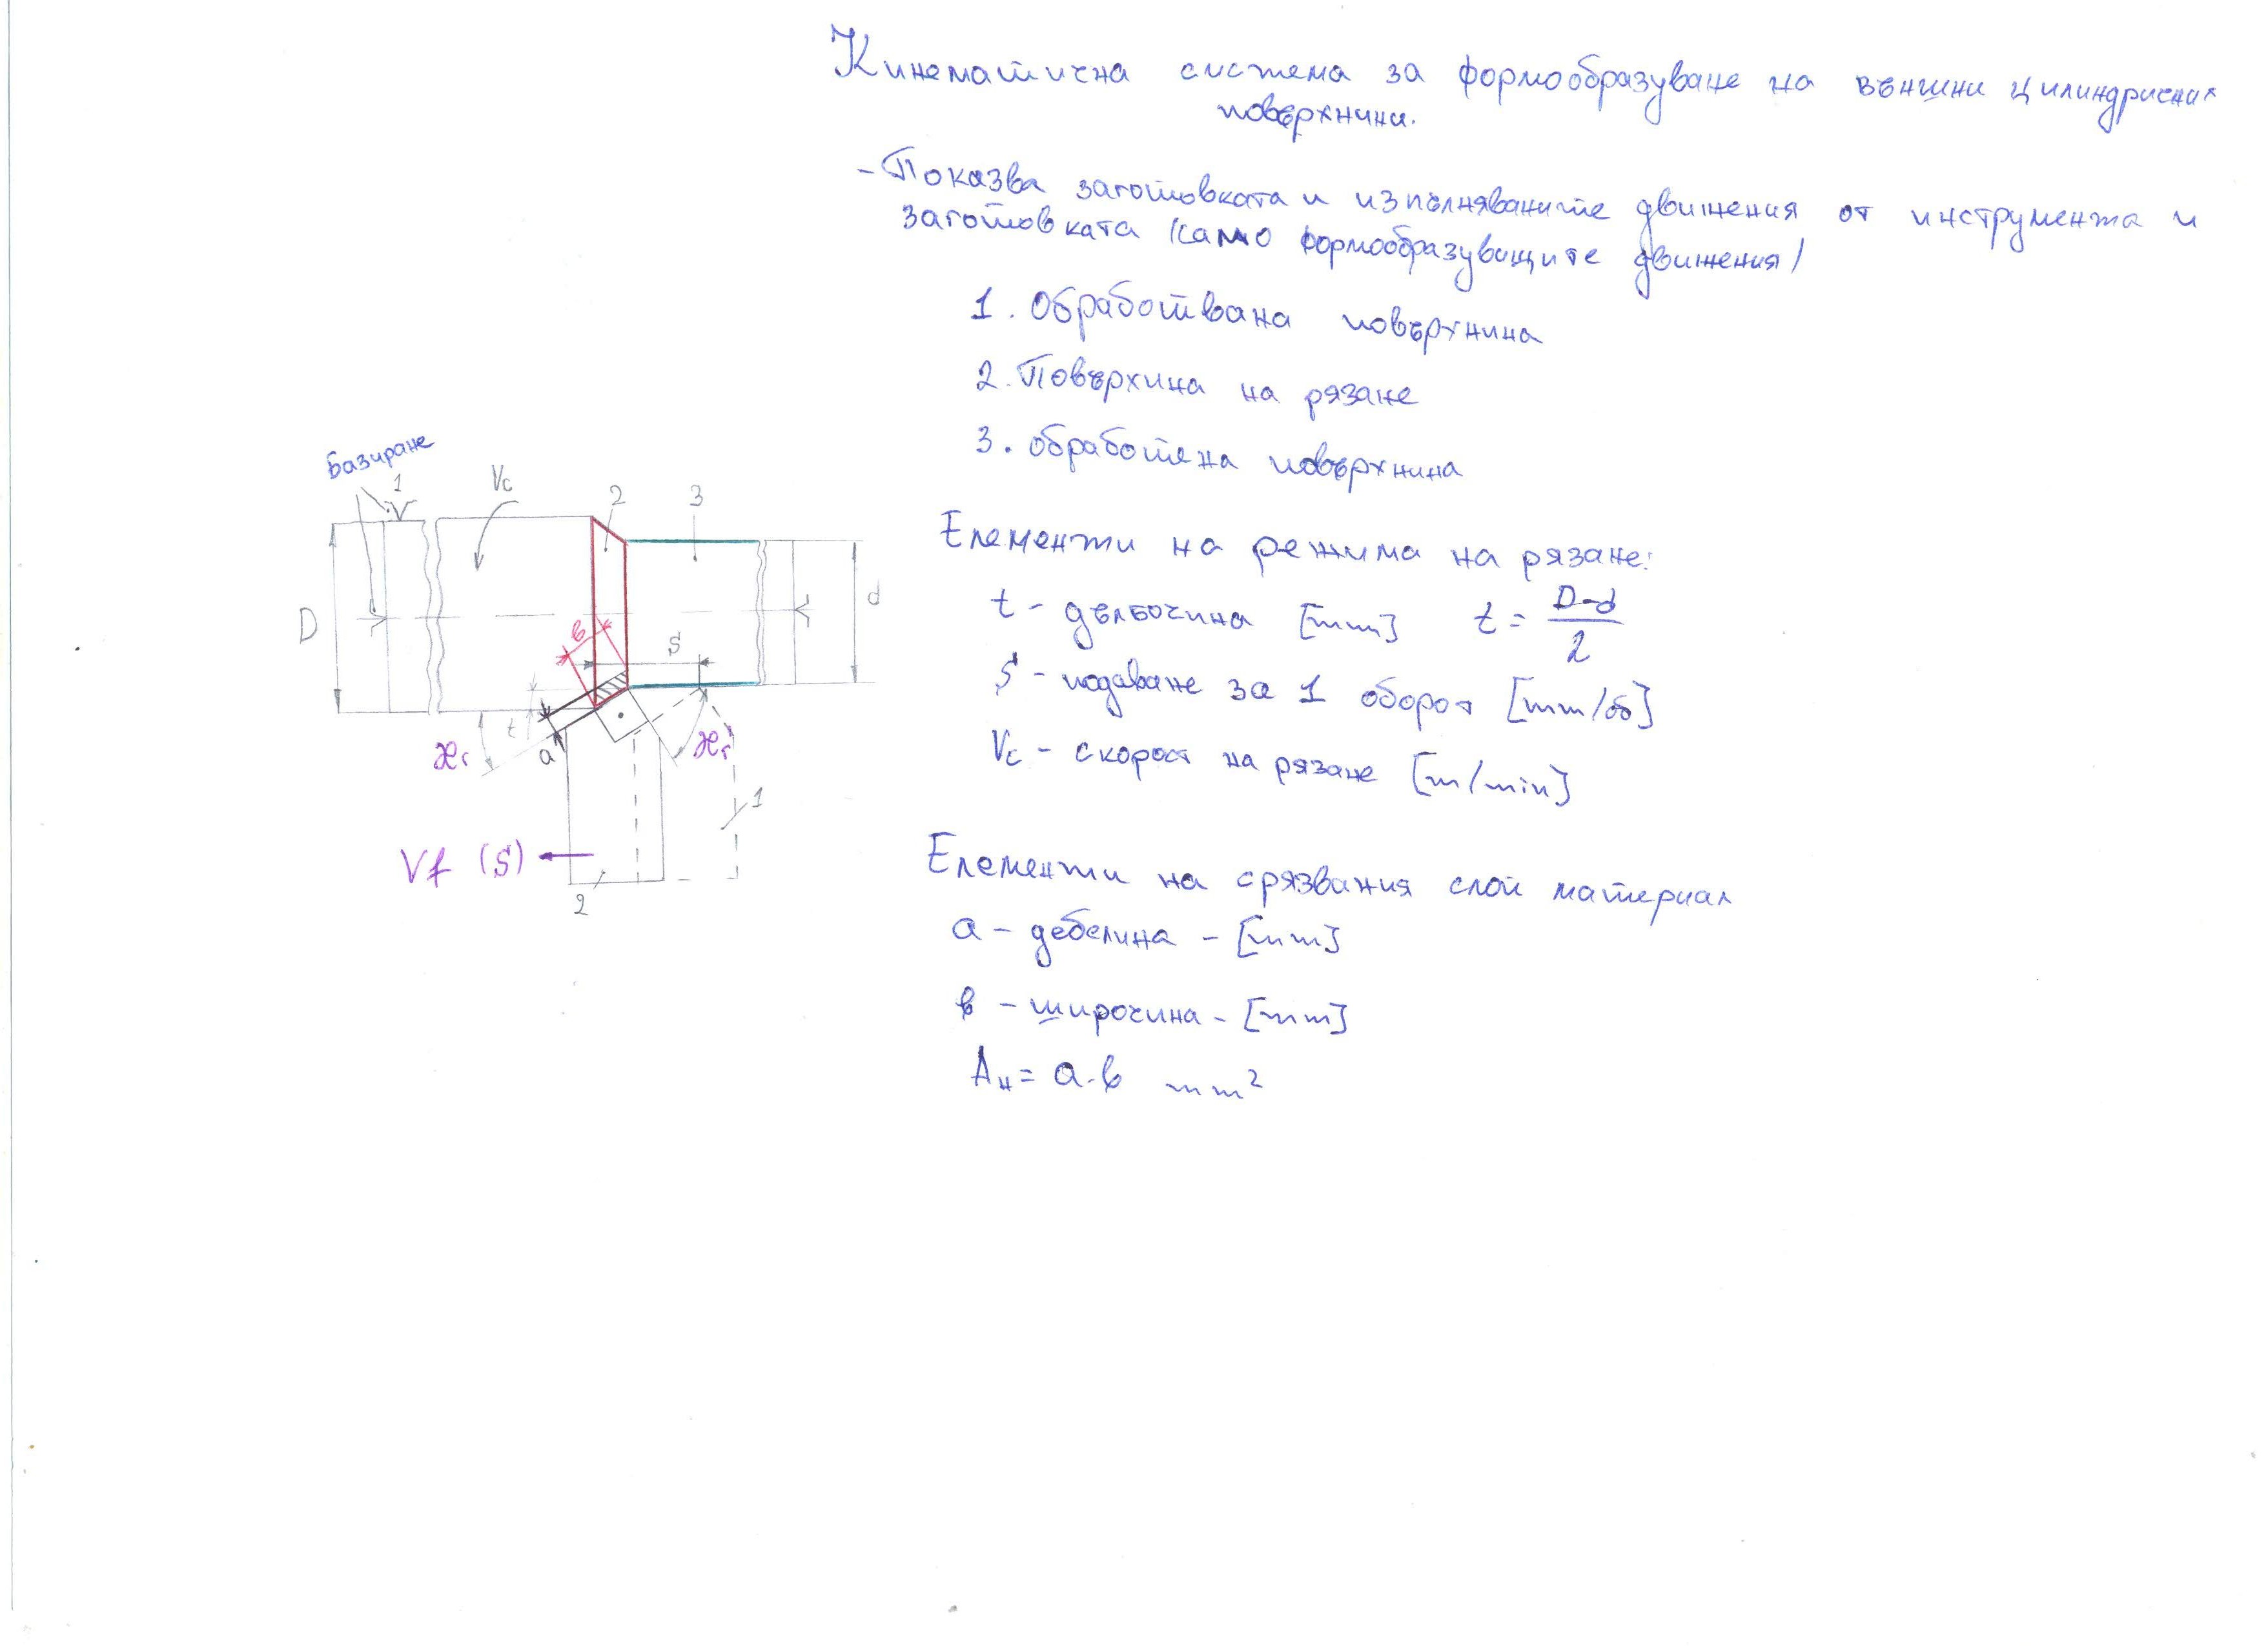 Кинематична система за формообразуване на външни цилиндрични
повърхнини.
- Показва заготовката и изпълняваните движения от инструмента и
заготовката (само формообразуващите движения)
1. Обработвана повърхнина
2. Повърхнина на рязане
3. обработена повърхнина
Базиране
1
Vc
2
3
D
d
в
S
t
a
ϰr
ϰr
1
Vf (S)
2
Елементи на режима на рязане:
t - дълбочина [mm] t = D-d / 2
S - подаване за 1 оборот [mm/об]
Vc - скорост на рязане [m/min]
Елементи на срязвания слой материал
a - дебелина - [mm]
в - широчина - [mm]
Aн = a.в mm²